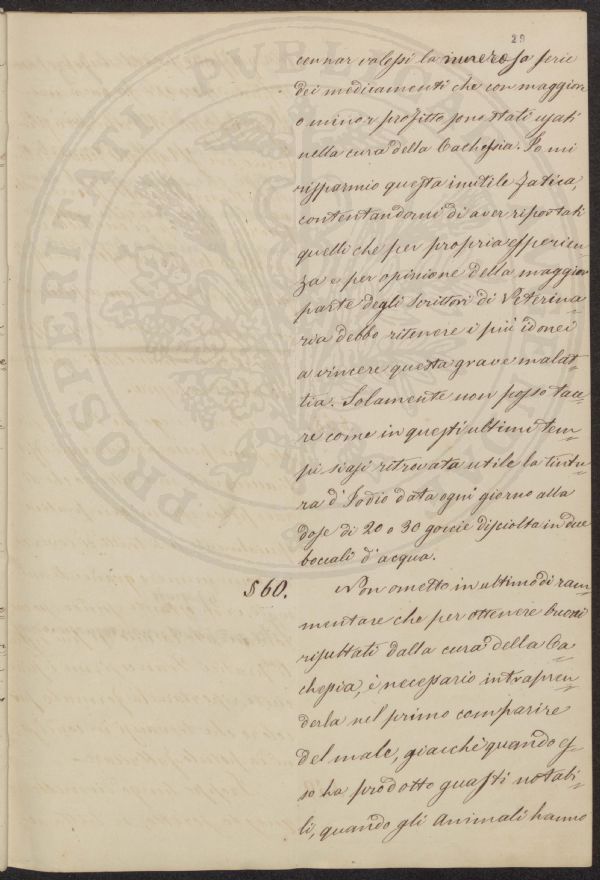 29
cennar volessi la numerosa serie
dei medicamenti che con maggiore
o minor profitto sono stati usati
nella cura della Cachessia. Io mi
risparmio questa inutile fatica,
contentandomi di aver riportati
quelli che per propria esperien=
za e per opinione della maggior
parte degli Scrittori di Veterina=
ria debbo ritenere i più idonei
a vincere questa grave malat=
tia. Solamente non posso tace=
re come in questi ultimi tem=
pi siasi ritrovata utile la tintu=
ra d'Iodio data ogni giorno alla
dose di 20 o 30 goccie disciolta in due
boccali d'acqua.
§ 60. Non ometto in ultimo di ram=
mentare che per ottenere buoni
risultati dalla cura della Ca=
chessia, è necessario intrapren=
derla nel primo comparire
del male, giacchè quando es=
so ha prodotto guasti notabi=
li, quando gli Animali hanno
PROSPERITATI PVBLICAE